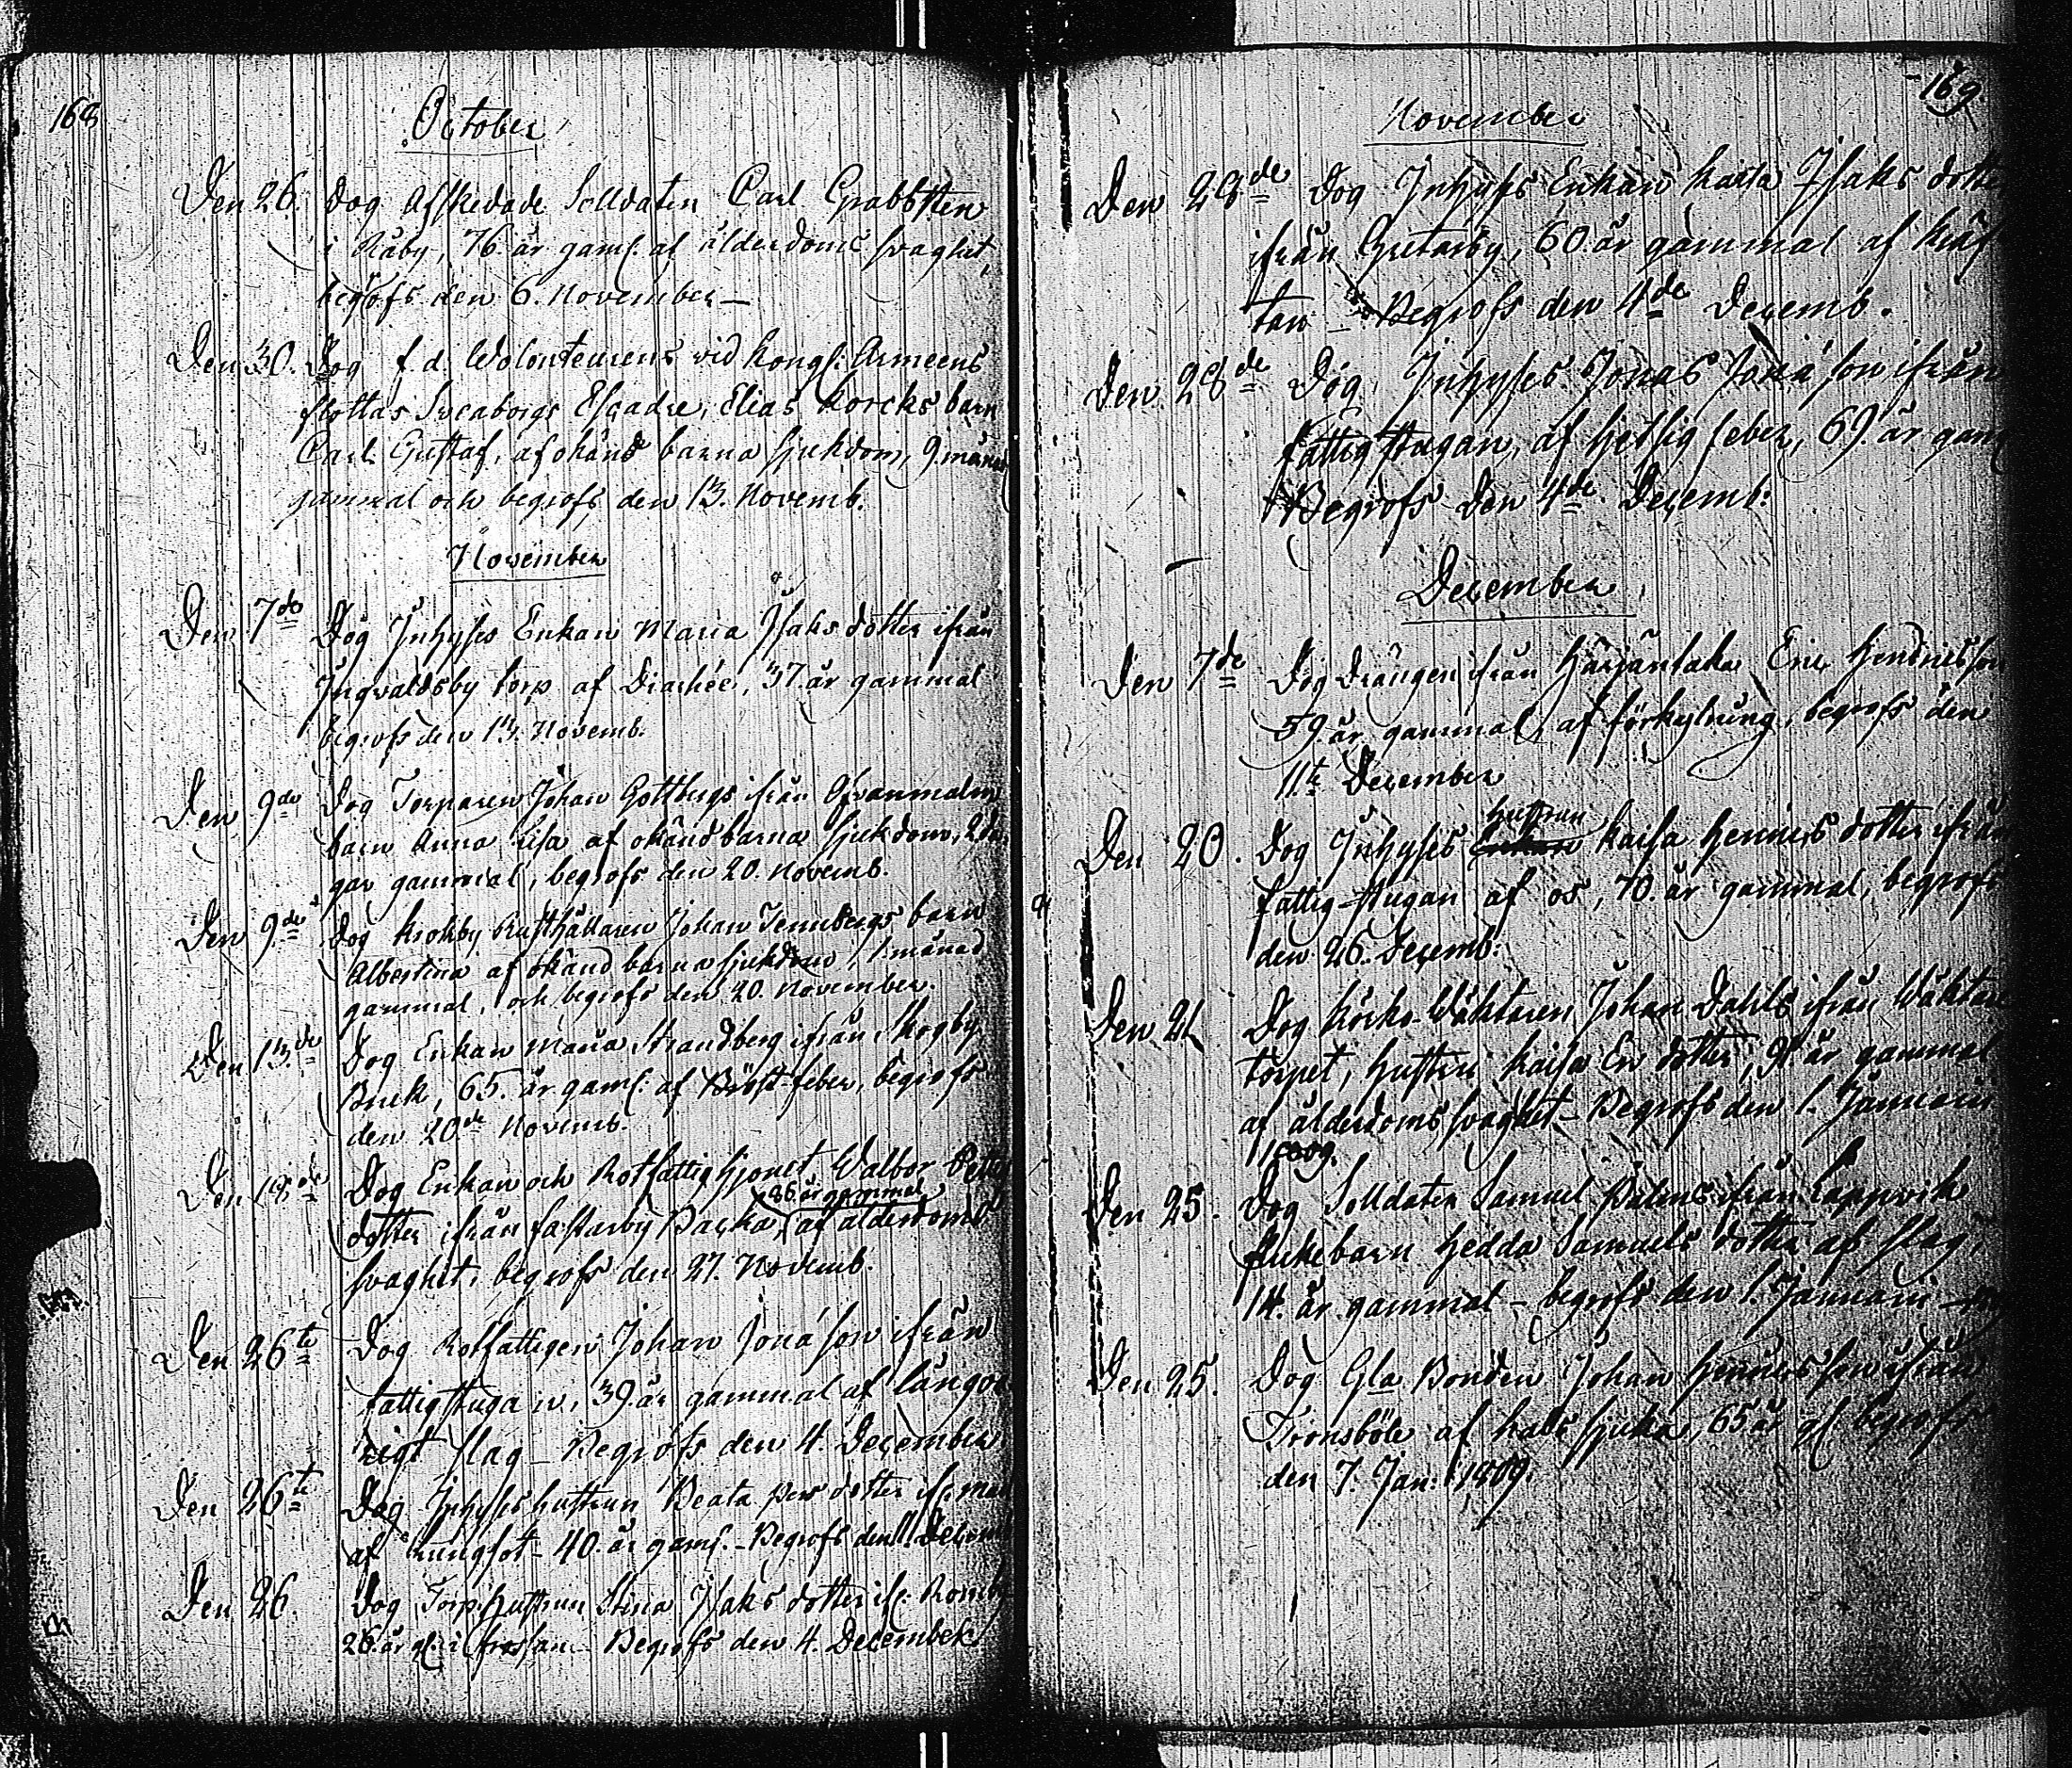 168
October
Den 26. Dog Afskedade Solldaten Carl Grabbsten
i Näby, 76. år gaml. af ålderdoms svaghet,
begrofs den 6. November —
Den 30. Dog f. d. Wolonteurens vid Kongl: Armeens
flottas Sveaborgs Esqadre, Elias Korcks barn
Carl Gustaf, af okänd barna sjukdom, 9. månad
gammal och begrofs den 13. Novemb.
November
Den 7de Dog Inhyses Enkan Maria Isaks dotter ifrån
Ingvaldsby torp af Diarhée, 37 år gammal
begrofs den 13. Novemb.
Den 9de Dog Torparen Johan Gottbergs ifrån Ofvanmalm
barn Anna Lisa af okänd barna sjukdom, 2 da
gar gammal, begrofs den 20. Novemb.
Den 9.de Dog Krokby Rusthållaren Johan Tennbergs barn
Albertina af okänd barna sjukdom, 1. månad
gammal, och begrofs den 20. November.
Den 13.de Dog Enkan Maria Strandberg ifrån Skogby
Bruk, 65. år gaml: af Bröst feber, begrofs
den 20de Novemb.
Den 18.de Dog Enkan och Rotfattighjonet Walbor Petters
86 år gammal
dotter ifrån fastarby Backa, af ålderdoms
svaghet, begrofs den 27. Novemb.
Den 26te Dog Rotfattigen Johan Jona son ifrån
fattigstugan, 39. år gammal af långva
rigt slag — Begrofs den 4. December
Den 26te Dog Inhyses hustrun Beata Pers dotter ifr.
af lungsot — 40. år gaml. — Begrofs den 11. Decemb
Den 26. Dog Torp. hustrun Stina Isaks dotter if:
26. år gl: i frossan — Begrofs den 4. December
169.
November
Den 28de Dog Inhyses Enkan Kaisa Isaks dotter
ifrån Gretarby, 60. år gammal af kräf
tan — Begrofs den 4de Decemb.
Den 28de Dog Inhyses Jonas Jona son ifrån
fattigstugan, af hetsig feber, 69. år gaml
Begrofs den 4de Decemb:
December
Den 7de Dog Drängen ifrån Härjäntaka Eric Hendricsson
59. år gammal, af förkylning, begrofs den
11te December
hustrun
Den 20. Dog Inhyses Enkan Kaisa Henrics dotter ifrån
fattig stugan af os, 70. år gammal, begrofs
den 26. Decemb:
Den 21 Dog Körko Wäktaren Johan Dahls ifrån Wäktare
torpet, hustru Kaisa Ers dotter, 91 år gammal
af ålderdoms svaghet — Begrofs den 1. Januarii
1809.
Den 25. Dog Solldaten Samuel Palms ifrån Lappvik
flickebarn Hedda Samuels dotter af slag,
14. år gammal — begrofs den 1. Januarii
Den 25. Dog Gla Bonden Johan Henrics son ifrån
Trönsböle af hals sjuka, 65 år gl begrofs
den 7. Jan: 1809.